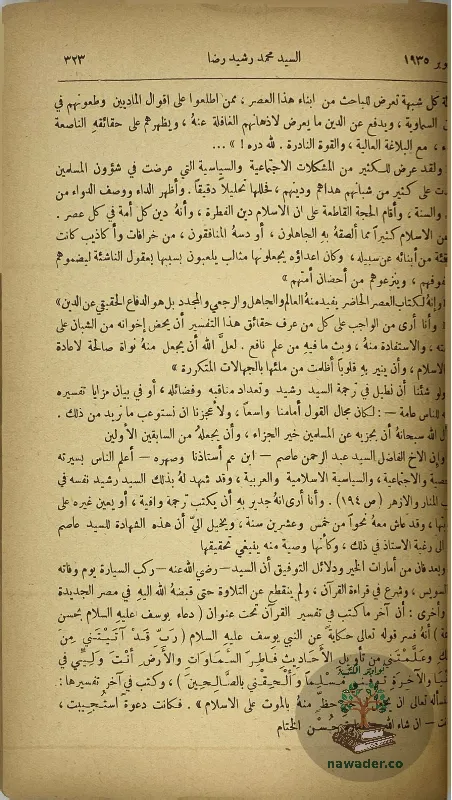 وبر ١٩٣٥ السيد محمد رشيد رضا ٣٢٣
كل شبهة تعرض للباحث من ابناء هذا العصر ، ممن اطلعوا على اقوال الماديين وطعونهم في
السماوية ، ويدفع عن الدين ما يعرض لاذهانهم الغافلة عنهُ ، ويظهرهم على حقائقهِ الناصعة
، مع البلاغة العالية ، والقوة النادرة . لله دره ! » ...
ولقد عرض للكثير من المشكلات الاجتماعية والسياسية التي عرضت في شؤون المسلمين
على كثير من شبانهم هداهم ودينهم ، فحللها تحليلاً دقيقاً . وأظهر الداء ووصف الدواء من
والسنة ، وأقام الحجة القاطعة على ان الاسلام دين الفطرة ، وأنهُ دين كل أمة في كل عصر .
عن الاسلام كثيراً مما ألصقهُ به الجاهلون ، أو دسهُ المنافقون ، من خرافات وأكاذيب كانت
من أبنائه عن سبيله ، وكان اعداؤه يجعلونها مثالب يلعبون بسببها بعقول الناشئة ليضموهم
صفوفهم ، وينزعوهم من أحضان أمتهم »
وإنهُ لكتاب العصر الحاضر يفيد منهُ العالم والجاهل والرجعي والمجدد بل هو الدفاع الحقيقي عن الدين »
وأنا أرى من الواجب على كل من عرف حقائق هذا التفسير أن يحض إخوانه من الشبان على
، والاستفادة منهُ ، وبث ما فيهِ من علم نافع . لعلَّ الله أن يجعل منهُ نواة صالحة لاعادة
الاسلام ، وأن ينير بهِ قلوباً أظلمت من ملئها بالجهالات المتكررة »
ولو شئنا أن نطيل في ترجمة السيد رشيد وتعداد مناقبه وفضائله ، أو في بيان مزايا تفسيره
للناس عامة — : لكان مجال القول أمامنا واسعاً ، ولأعجزنا ان نستوعب ما نريد من ذلك .
الله سبحانهُ أن يجزيه عن المسلمين خير الجزاء ، وأن يجعلهُ من السابقين الأولين
وإن الاخ الفاضل السيد عبد الرحمن عاصم — ابن عم أستاذنا وصهره — أعلم الناس بسيرته
والاجتماعية ، والسياسية الاسلامية والعربية ، وقد شهد لهُ بذلك السيد رشيد نفسه في
المنار والازهر ( ص ١٩٤ ) . وأنا أرى انهُ جدير بهِ أن يكتب ترجمة وافية ، أو يعين غيره على
، وقد عاش معهُ نحواً من خمس وعشرين سنة ، ويخيل إليّ أن هذه الشهادة للسيد عاصم
الى رغبة الاستاذ في ذلك ، وكأنها وصية منه ينبغي تحقيقها
وبعد فان من أمارات الخير ودلائل التوفيق أن السيد — رضي الله عنه — ركب السيارة يوم وفاته
السويس ، وشرع في قراءة القرآن ، ولم ينقطع عن التلاوة حتى قبضهُ الله اليهِ في مصر الجديدة
وأخرى : أن آخر ما كتب في تفسير القرآن تحت عنوان ( دعاء يوسف عليهِ السلام بحسن
) أنهُ فسر قوله تعالى حكايةً عن النبي يوسف عليهِ السلام ( رَبِّ قَدْ آتَيْتَنِي مِنَ
وَعَلَّمْتَنِي من تأويلِ الأَحَادِيثِ فاطِرَ السَّمَاوَاتِ وَالأَرْضِ أَنْتَ وَلِيِّي فِي
وَالآخِرَةِ تَوَفَّنِي مُسْلِماً وَأَلْحِقْنِي بالصَّالِحِينَ ) ، وكتب في آخر تفسيرها :
يسأله تعالى ان حظهِ منهُ بالموت على الاسلام » . فكانت دعوة استُجيبت ،
— ان شاء الله حُسْن الختام
نوادر الكتب
nawader.co